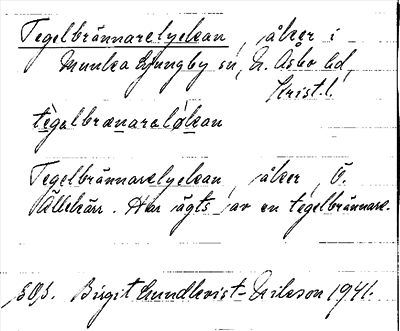 Tegelbrännarelyckan, åker i
Munka Ljungby sn, N. Åsbo hd,
Krist.l.
tègelbrænarelø̀kan
Tegelbrännarelyckan, åker, Ö.
Ällekärr. Har ägts av en tegelbrännare.
Birgit Lundkvist-Nilsson 1941.